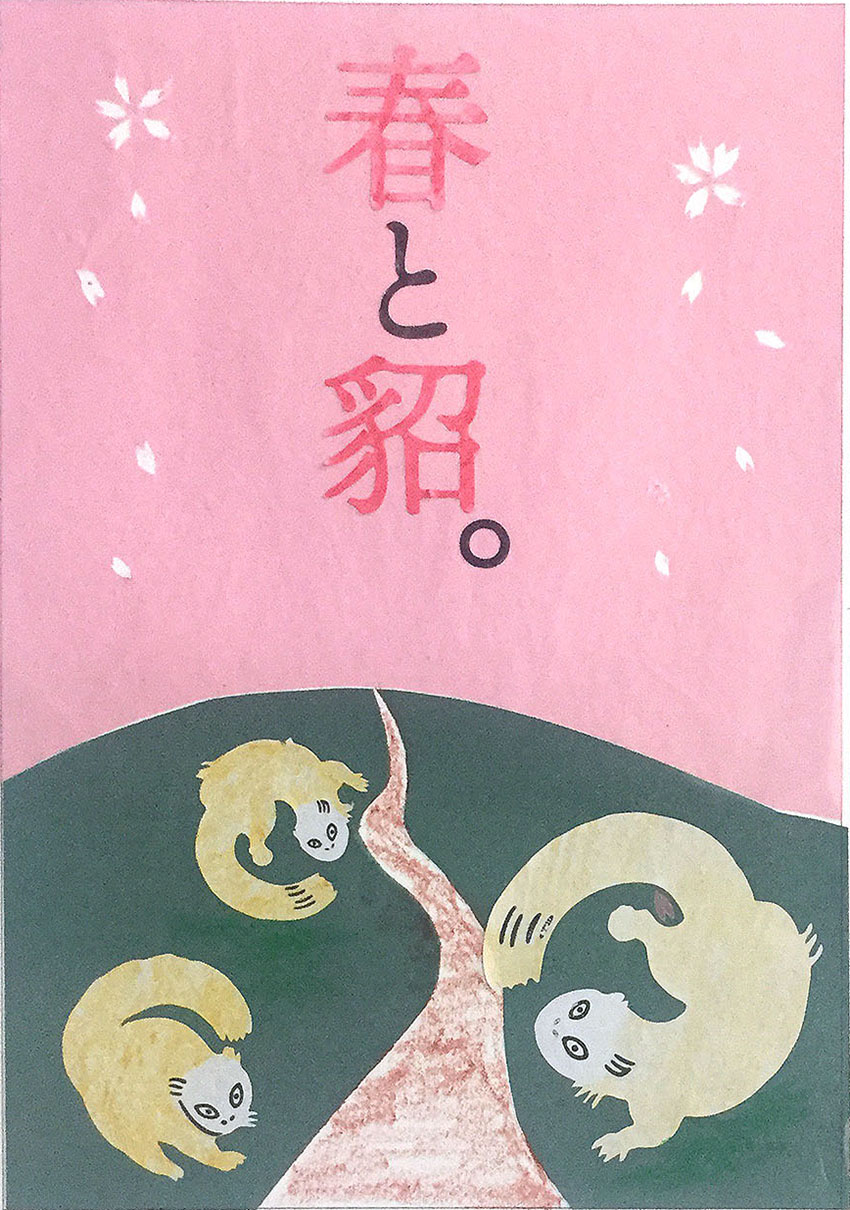 春と貂。